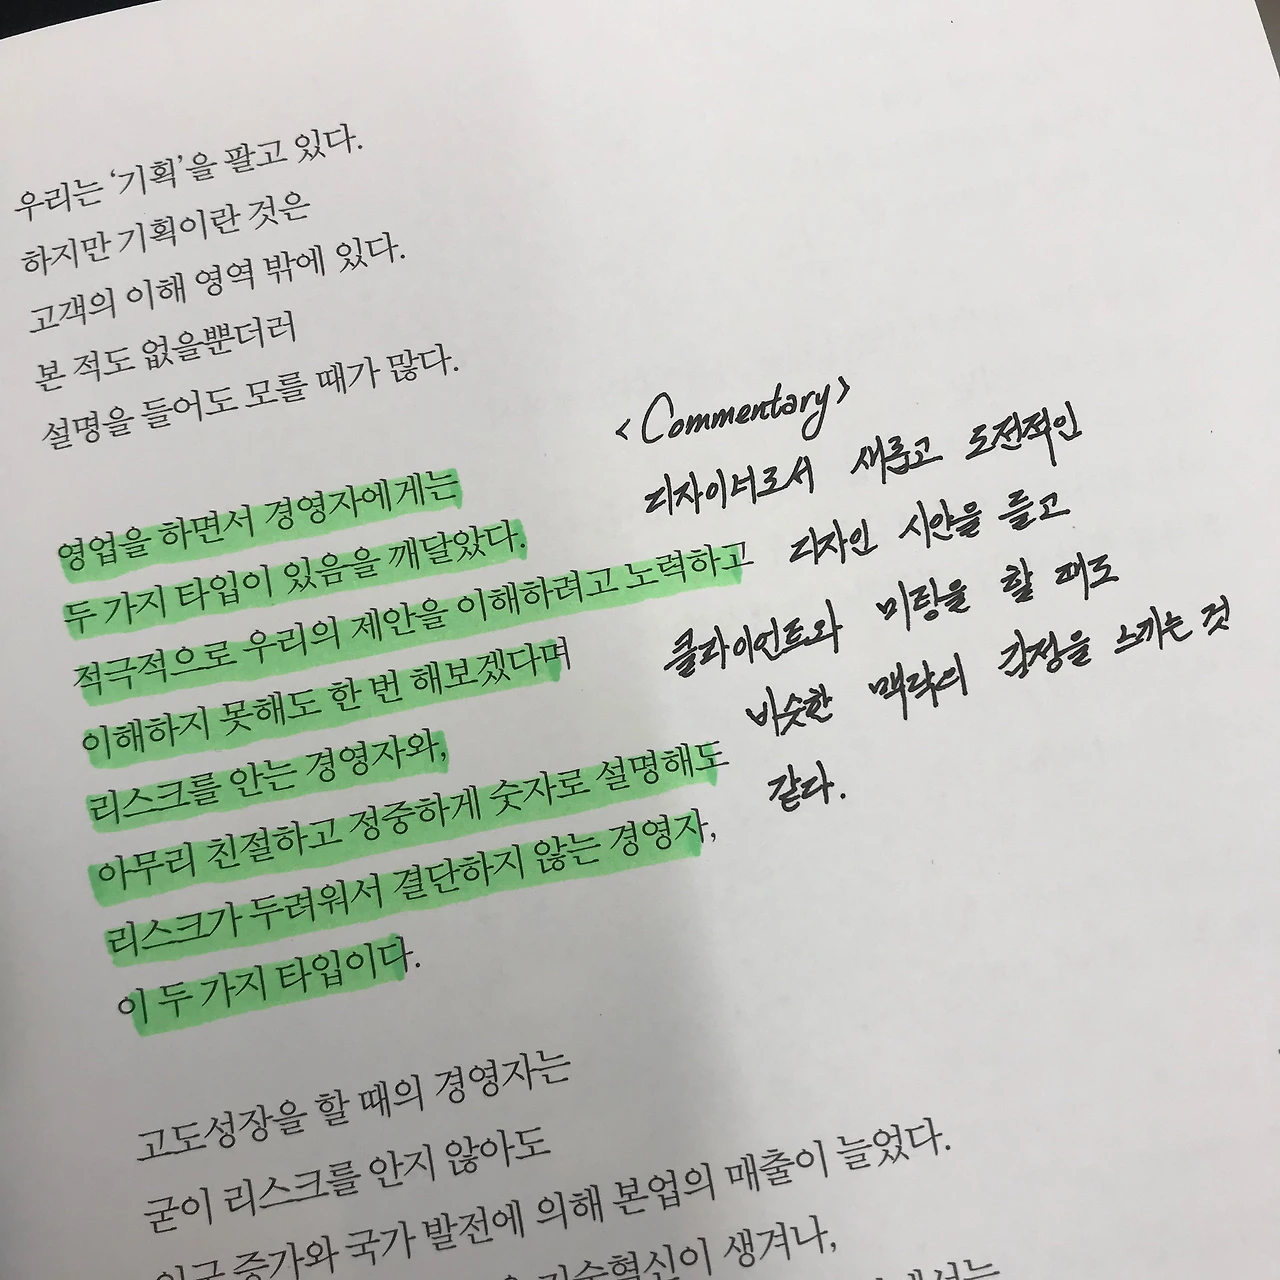 우리는 ‘기획’을 팔고 있다.
하지만 기획이란 것은
고객의 이해 영역 밖에 있다.
본 적도 없을뿐더러
설명을 들어도 모를 때가 많다.
영업을 하면서 경영자에게는
두 가지 타입이 있음을 깨달았다.
적극적으로 우리의 제안을 이해하려고 노력하고
이해하지 못해도 한 번 해보겠다며
리스크를 안는 경영자와,
아무리 친절하고 정중하게 숫자로 설명해도
리스크가 두려워서 결단하지 않는 경영자,
이 두 가지 타입이다.
<Commentary>
디자이너로서 새롭고 도전적인
디자인 시안을 들고
클라이언트와 미팅을 할 때도
비슷한 맥락의 감정을 느끼는 것
같다.
고도성장을 할 때의 경영자는
굳이 리스크를 안지 않아도
인구 증가와 국가 발전에 의해 본업의 매출이 늘었다.
기술혁신이 생겨나,